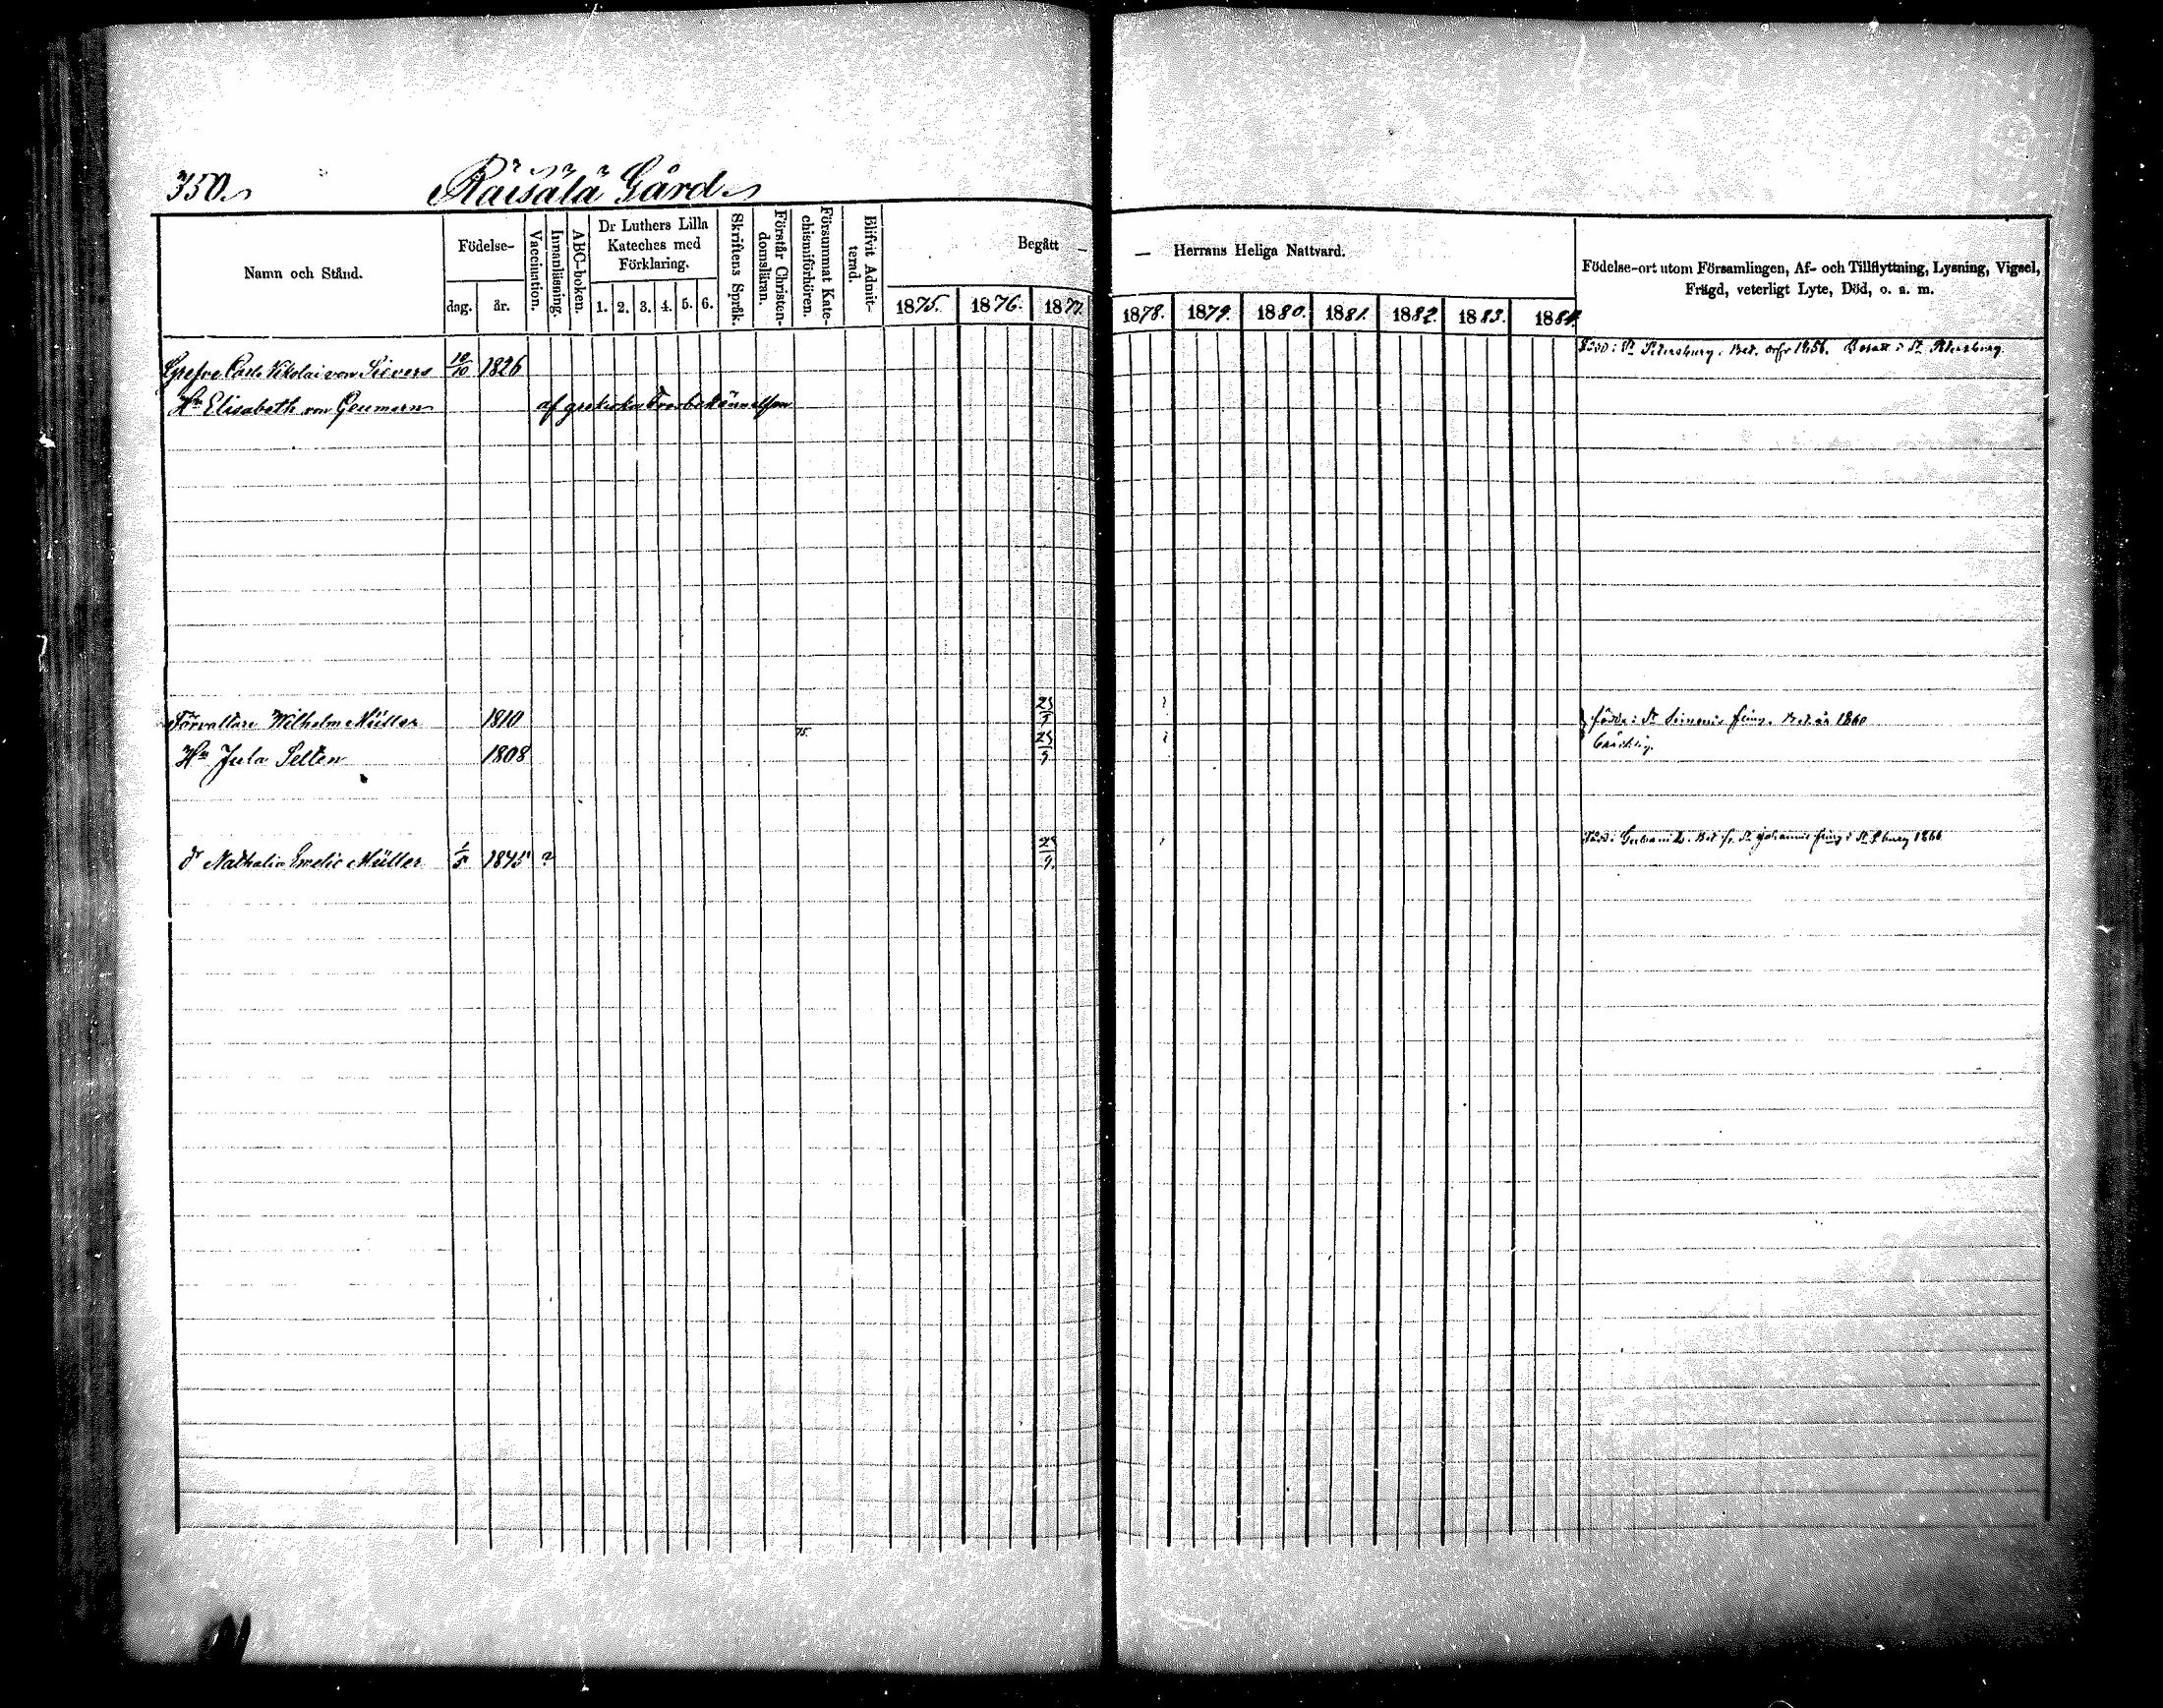 350.
Räisälä Gård
Namn och Stånd.
Födelse-
dag.
år.
Vaccination.
Innanläsning.
ABC-boken.
Dr Luthers Lilla
Kateches med
Förklaring.
1. 2. 3. 4. 5. 6.
Skriftens Språk.
Förstår Christen-
domsläran.
Försummat Kate-
chismiförhören.
Blifvit Admit-
terad.
Begått — — Herrans Heliga Nattvard.
1875. 1876. 1877. 1878. 1879. 1880. 1881. 1882. 1883. 1884.
Födelse-ort utom Församlingen, Af- och Tillflyttning, Lysning, Vigsel,
Frägd, veterligt Lyte, Död, o. s. m.
Grefve Carl Nikolai von Sievers 10/10 1826 Född i St Petersburg. Bet. 1856. Bosatt i St Petersburg.
Hn Elisabeth von Geumern af grekiska trosbekännelsen
Förvaltare Wilhelm Müller 1810 25/9 födde i St Bet. år 1860
Hn Jula Selten 1808 75. 25/9
dr Nathalia Emelie Müller 1/5 1845 ? 25/9. Född i Bet. fr. St Johannis förs i St Pburg 1866